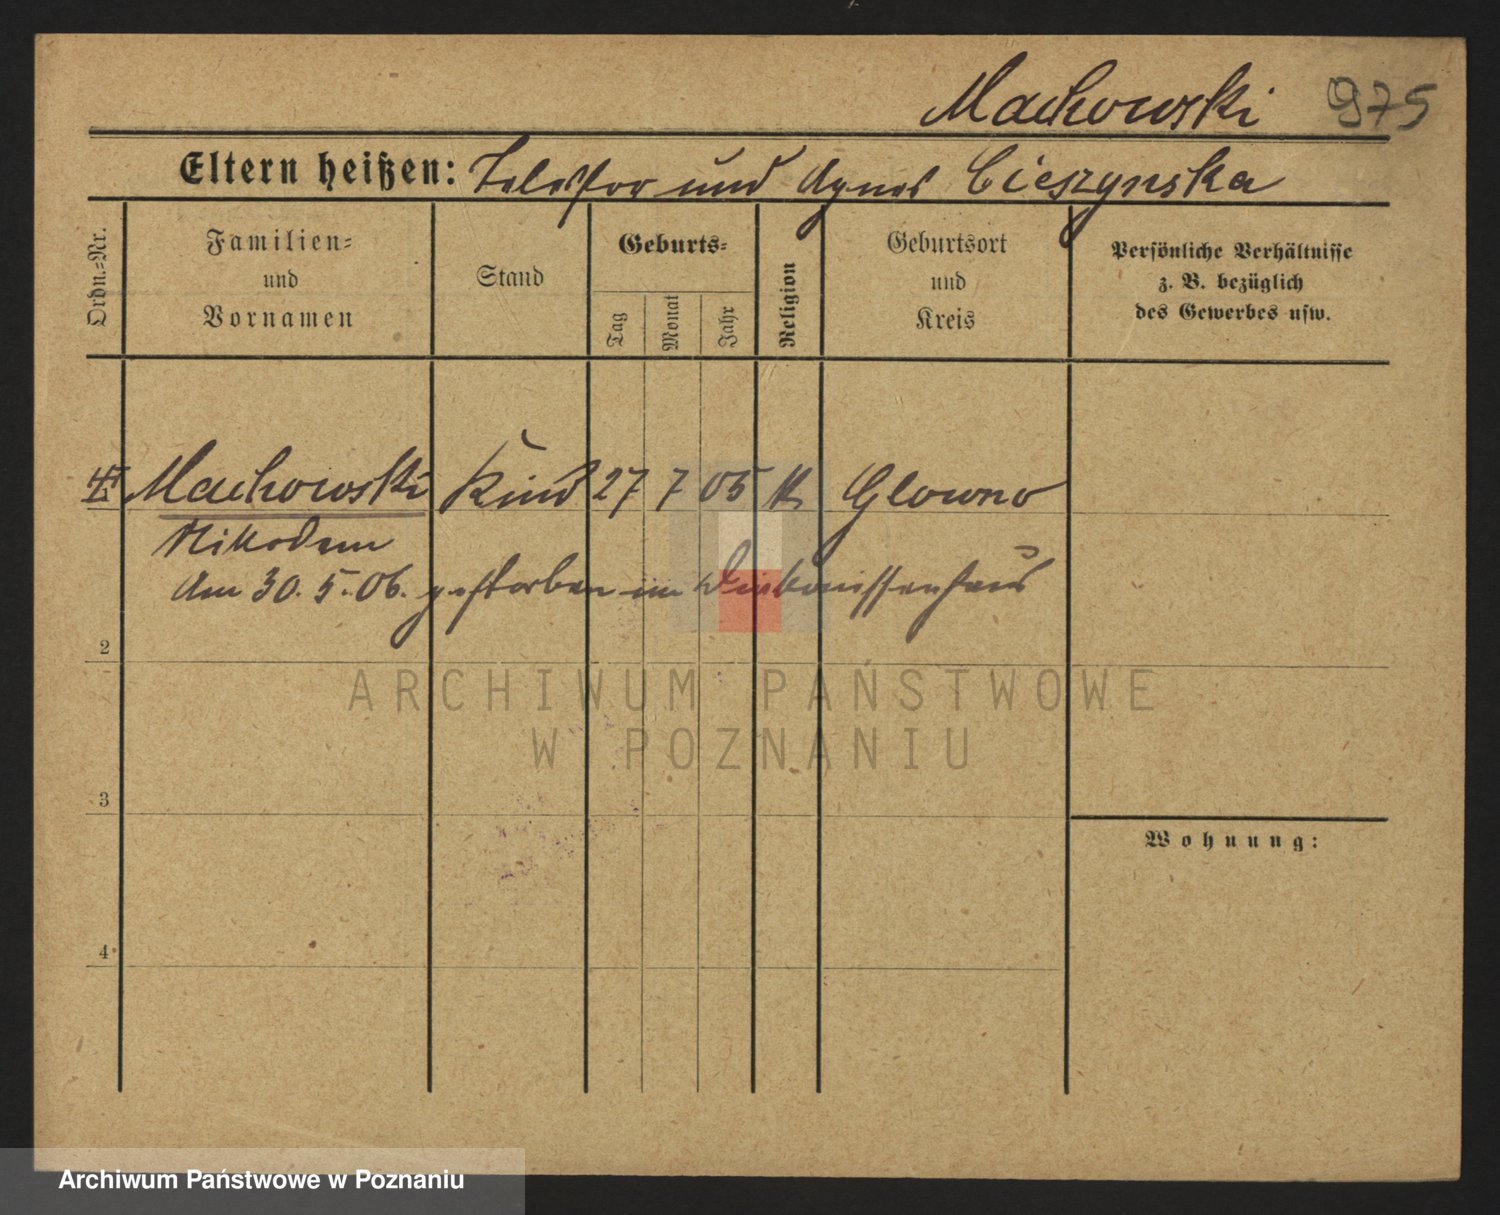 Machowski 975
Eltern heißen: Telesfor und Agnes Cieszynska
Ordn.-Nr.
Familien-
und
Vornamen
Stand
Geburts-
Tag
Monat
Jahr
Religion
Geburtsort
und
Kreis
Persönliche Verhältnisse
z. B. bezüglich
des Gewerbes usw.
Machowski Kind 27 7 05 K Glowno
Nikodem
Am 30. 5. 06. gestorben im Diakonissenhaus
2
ARCHIWUM PAŃSTWOWE
W POZNANIU
3
Wohnung:
4
Archiwum Państwowe w Poznaniu